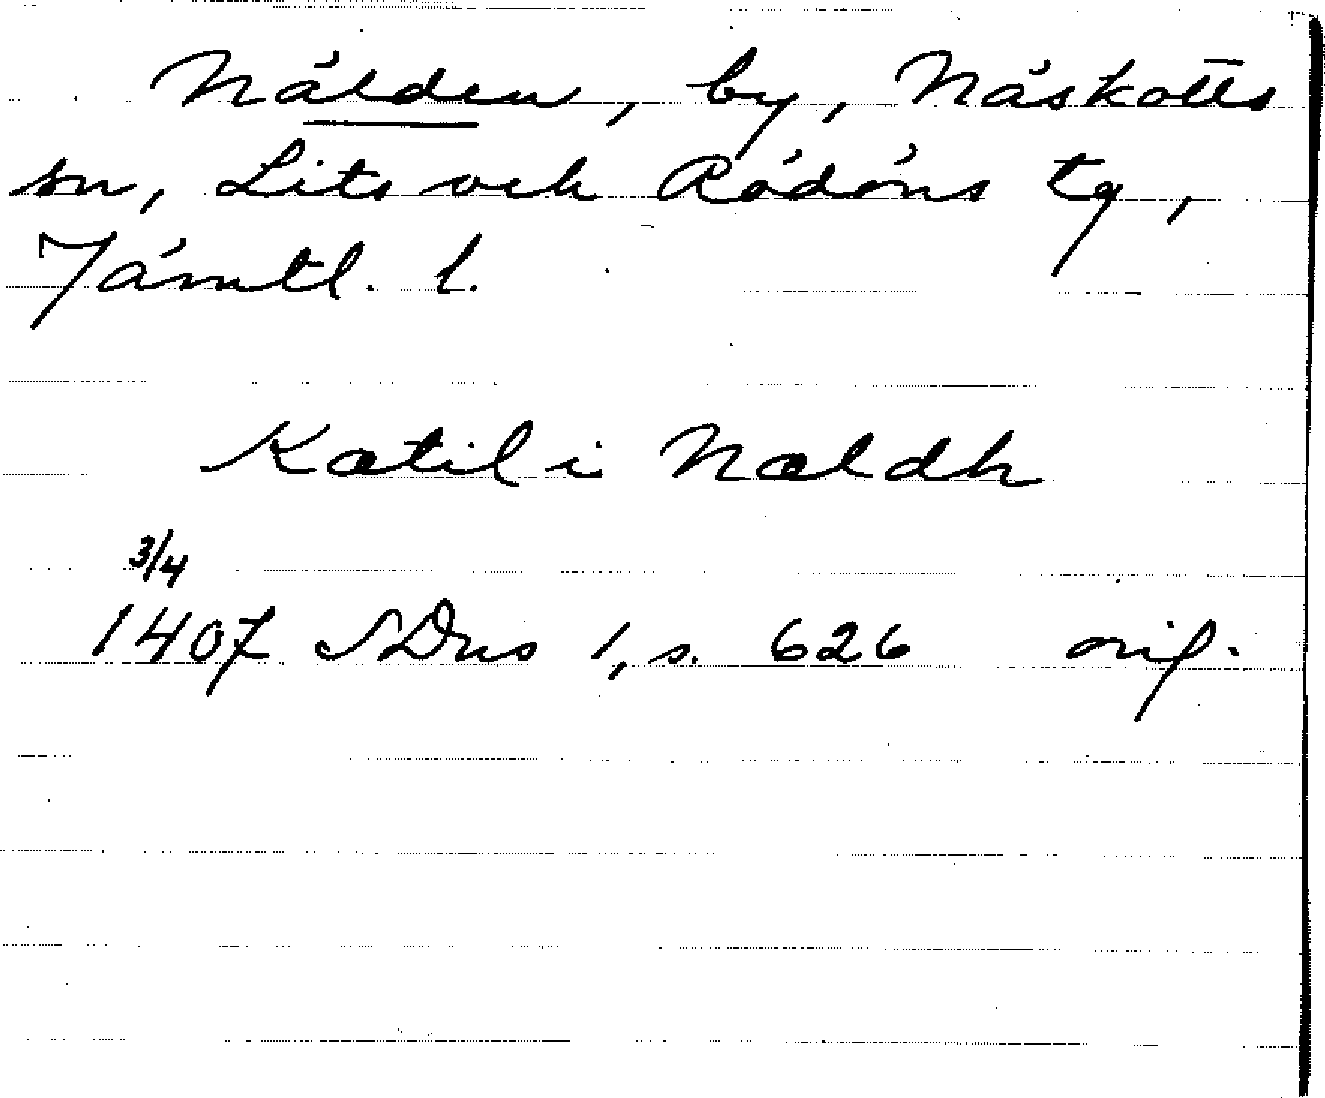 Nälden, by, Näskotts
sn, Lits och Rödöns tg,
Jämtl. l.
Kætil i Nældh
3/4
1407 SDns 1, s. 626 orig.